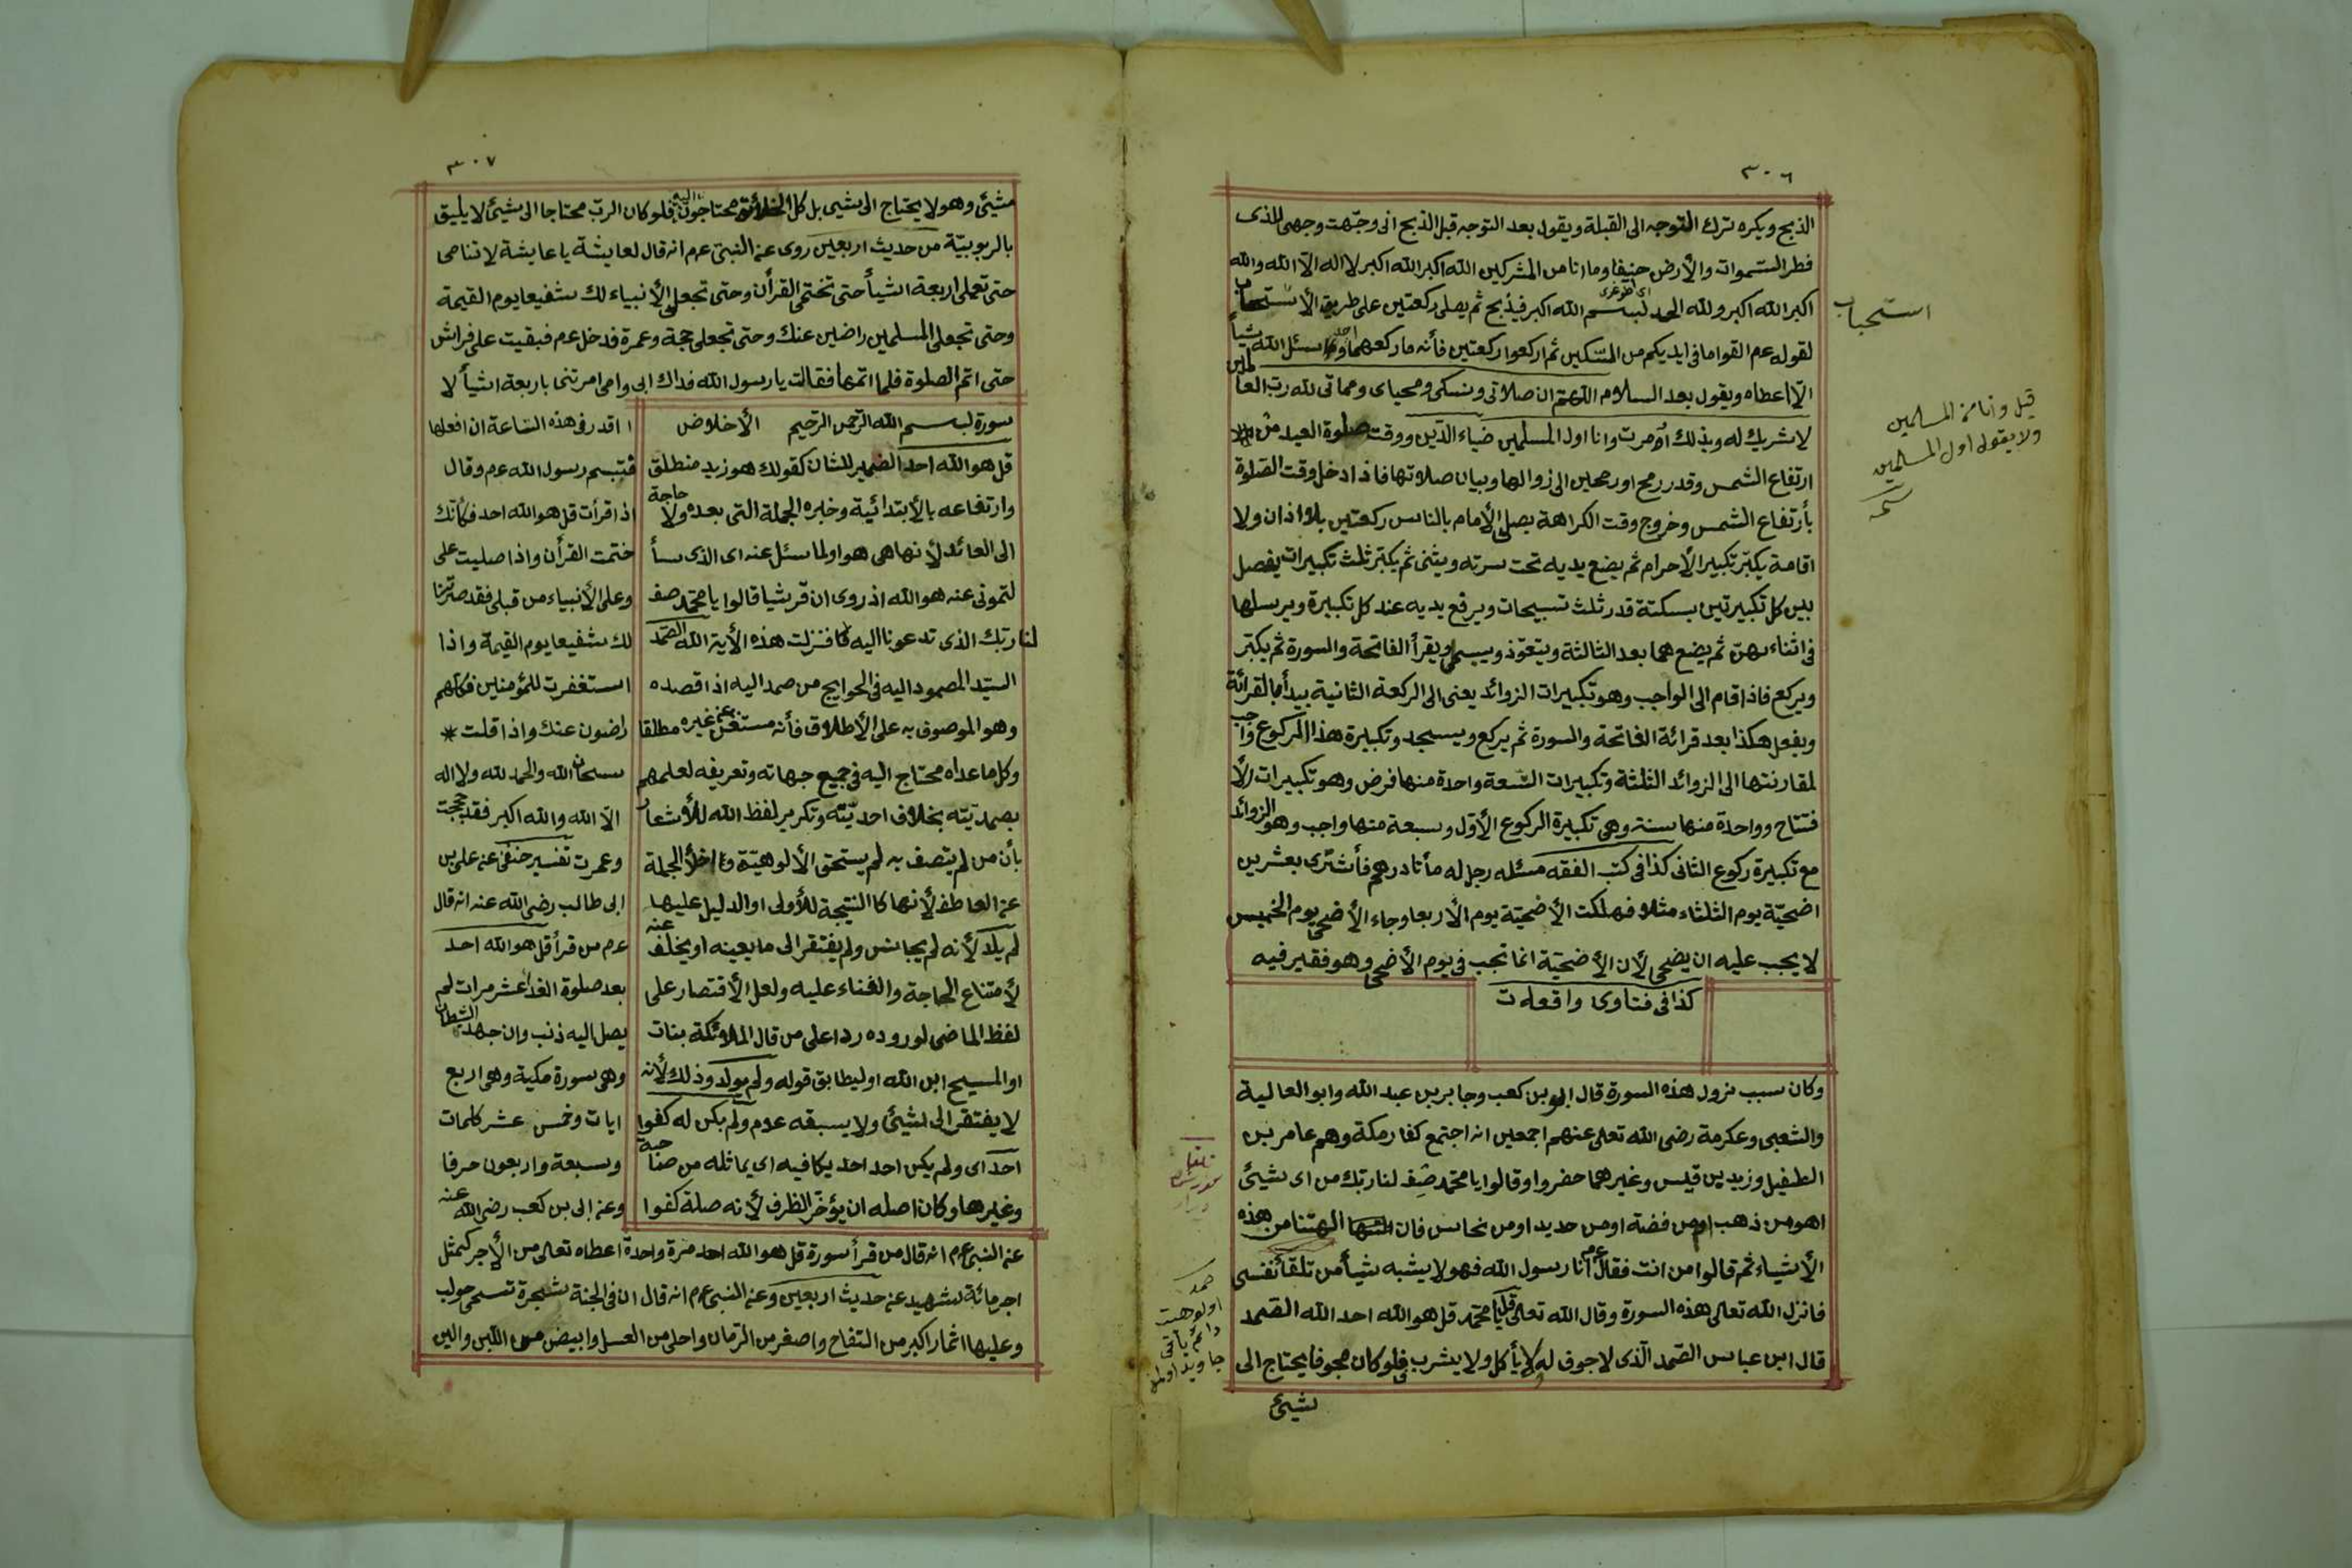 ٣٠٦
الذبح ويكره ترك التوجه الى القبلة ويقول بعد التوجه قبل الذبح انى وجّهت وجهى للذى
فطر السّموات والأرض حنيفا وما انا من المشركين الله اكبر الله اكبر لا اله الّا الله والله
اكبر الله اكبر ولله الحمد بسم الله اكبر فيذبح ثم يصلى ركعتين على طريق الأستحباب
استحباب
لقوله عم القوا ما فى ايديكم من السّكين ثم اركعوا ركعتين فأنه ما ركعهما احد وسئل الله شيأ
الّا اعطاه ويقول بعد السلام اللهم ان صلاتى ونسكى ومحياى ومماتى لله رب العالمين
لا شريك له وبذلك أومرت وانا اول المسلمين ضياء الدّين ووقت صلوة العيد من
قيل وانا من المسلمين
ولا يقول اول المسلمين
ارتفاع الشمس وقدر رمح او رمحين الى زوالها وبيان صلاتها فاذا دخل وقت الصّلوة
بأرتفاع الشمس وخروج وقت الكراهة يصلى الأمام بالناس ركعتين بلا اذان ولا
اقامة يكبّر تكبير الأحرام ثم يضع يديه تحت سرته ويثنى ثم يكبّر ثلث تكبيرات يفصل
بين كل تكبيرتين بسكتة قدر ثلث تسبيحات ويرفع يديه عند كل تكبيرة ويرسلها
فى اثناءهنّ ثم يضع هما بعد الثالثة ويتعوّذ ويسمى ويقرأ الفاتحة والسورة ثم يكبّر
ويركع فاذا قام الى الواجب وهو تكبيرات الزوائد يعنى الى الركعة الثانية يبدأ بالقرائة
ويفعل هكذا بعد قرائة الفاتحة والسورة ثم يركع ويسجد وتكبيرة هذا الركوع واجب
لمقارنتها الى الزوائد الثلثة وتكبيرات التّسعة واحدة منها فرض وهو تكبيرات الأ
فتتاح وواحدة منها سنة وهى تكبيرة الركوع الأوّل وسبعة منها واجب وهو الزوائد
مع تكبيرة ركوع الثانى كذا فى كتب الفقه مسئله رجل له مأتا درهم فأشترى بعشرين
اضحيّة يوم الثلثاء مثلا فهلكت الأضحيّة يوم الأربعا وجاء الأضحى يوم الخميس
لا يجب عليه ان يضحى لأن الأضحيّة انما تجب فى يوم الأضحى وهو فقير فيه
كذا فى فتاوى واقعه ت
وكان سبب نزول هذه السورة قال ابو بن كعب وجابر بن عبد الله وابو العالية
والشعبى وعكرمة رضى الله تعالى عنهم اجمعين انه اجتمع كفار مكة وهم عامر بن
الطفيل وزيد بن قيس وغيرهما حضروا وقالوا يا محمّد صِف لنا ربك من اى شيئ
اهو من ذهب او من فضة او من حديد او من نحاس فان الهتنا من هذه
الأشياء ثم قالوا من انت فقال عم انا رسول الله فهو لا يشبه شيأ من تلقأ نفسى
فانزل الله تعالى هذه السورة وقال الله تعالى قل يا محمّد قل هو الله احد الله الصّمد
قال ابن عباس الصّمد الّذى لا جوف له لا يأكل ولا يشرب فلو كان مجوفا يحتاج الى
شيئ
صمد
اولوهيت
دائم باقى
جاويد اولمز
٣٠٧
شيئ وهو لا يحتاج الى شيى بل كل الخلائق محتاجون اليه فلو كان الربّ محتاجا الى شيئ لا يليق
بالربوبيّة من حديث اربعين روى عن النبىّ عم انه قال لعايشة يا عايشة لا تنامى
حتى تعملى اربعة اشيأ حتى تختمى القرأن وحتى تجعلى الأنبياء لك شفيعا يوم القيمة
وحتى تجعلى المسلمين راضين عنك وحتى تجعلى حجة وعمرة فدخل عم فبقيت على فراش
حتى اتم الصلوة فلما اتمها فقالت يا رسول الله فداك ابى وامى امرتنى باربعة اشيأ لا
سورة بسم الله الرّحمن الرّحيم الأخلاص
قل هو الله احد الضمير للشان كقولك هو زيد منطلق
وارتفاعه بالأبتدائية وخبره الجملة التى بعده ولا حاجة
الى العائد لأنها هى هو او لما سئل عنه اى الذى سأ
لتمونى عنه هو الله اذ روى ان قريشا قالوا يا محمّد صف
لنا ربك الذى تدعونا اليه فنزلت هذه الأية الله الصّمد
السيّد المصمود اليه فى الحوايج من صمد اليه اذا قصده
وهو الموصوف به على الأطلاق فأنه مستغن عن غيره مطلقا
وكل ما عداه محتاج اليه فى جميع جهاته وتعريفه لعلمهم
بصمديّته بخلاف احديّته وتكرير لفظ الله للأشعار
بأن من لم يتصف به لم يستحق الألوهيّة واخلأ الجملة
عن العاطف لأنها كا النتيجة للأولى او الدليل عليها
لم يلد لأنه لم يجانس ولم يفتقر الى ما يعينه او يخلف عنه
لأمتناع الحاجة والفناء عليه ولعل الأقتصار على
لفظ الماضى لوروده ردا على من قال الملائكة بنات
او المسيح ابن الله او ليطابق قوله ولم يولد وذلك لأنه
لا يفتقر الى لشيئ ولا يسبقه عدم ولم يكن له كفوا
احد اى ولم يكن احد احد يكافيه اى يماثله من صاحبة
وغيرها وكان اصله ان يؤخّر الظرف لأنه صلة كفوا
اقدر فى هذه السّاعة ان افعلها
فتبسم رسول الله عم وقال
اذا قرأت قل هو الله احد فكأنك
ختمت القرأن واذا صليت على
وعلى الأنبياء من قبلى فقد صرنا
لك شفيعا يوم القيمة واذا
استغفرت للمؤمنين فكلهم
راضون عنك واذا قلت *
سبحان الله والحمد لله ولا اله
الّا الله والله اكبر فقد حججت
وعمرت تفسير حنفى عن على بن
ابى طالب رضى الله عنه انه قال
عم من قرأ قل هو الله احد
بعد صلوة الغدا عشر مرات لم
يصل اليه ذنب وان جهد الشيطان
وهى سورة مكية وهى اربع
ايات وخمس عشر كلمات
وسبعة واربعون حرفا
وعن ابى بن كعب رضى الله عنه
عن النبى عم انه قال من قرأ سورة قل هو الله احد مرة واحدة اعطاه تعالى من الأجر كمثل
اجر مائة شهيد عن حديث اربعين وعن النبى عم انه قال ان فى الجنة شجرة تسمى حولب
وعليها اثمار اكبر من التفاح واصغر من الرّمان واحلى من العسل وابيض من اللّبن والين